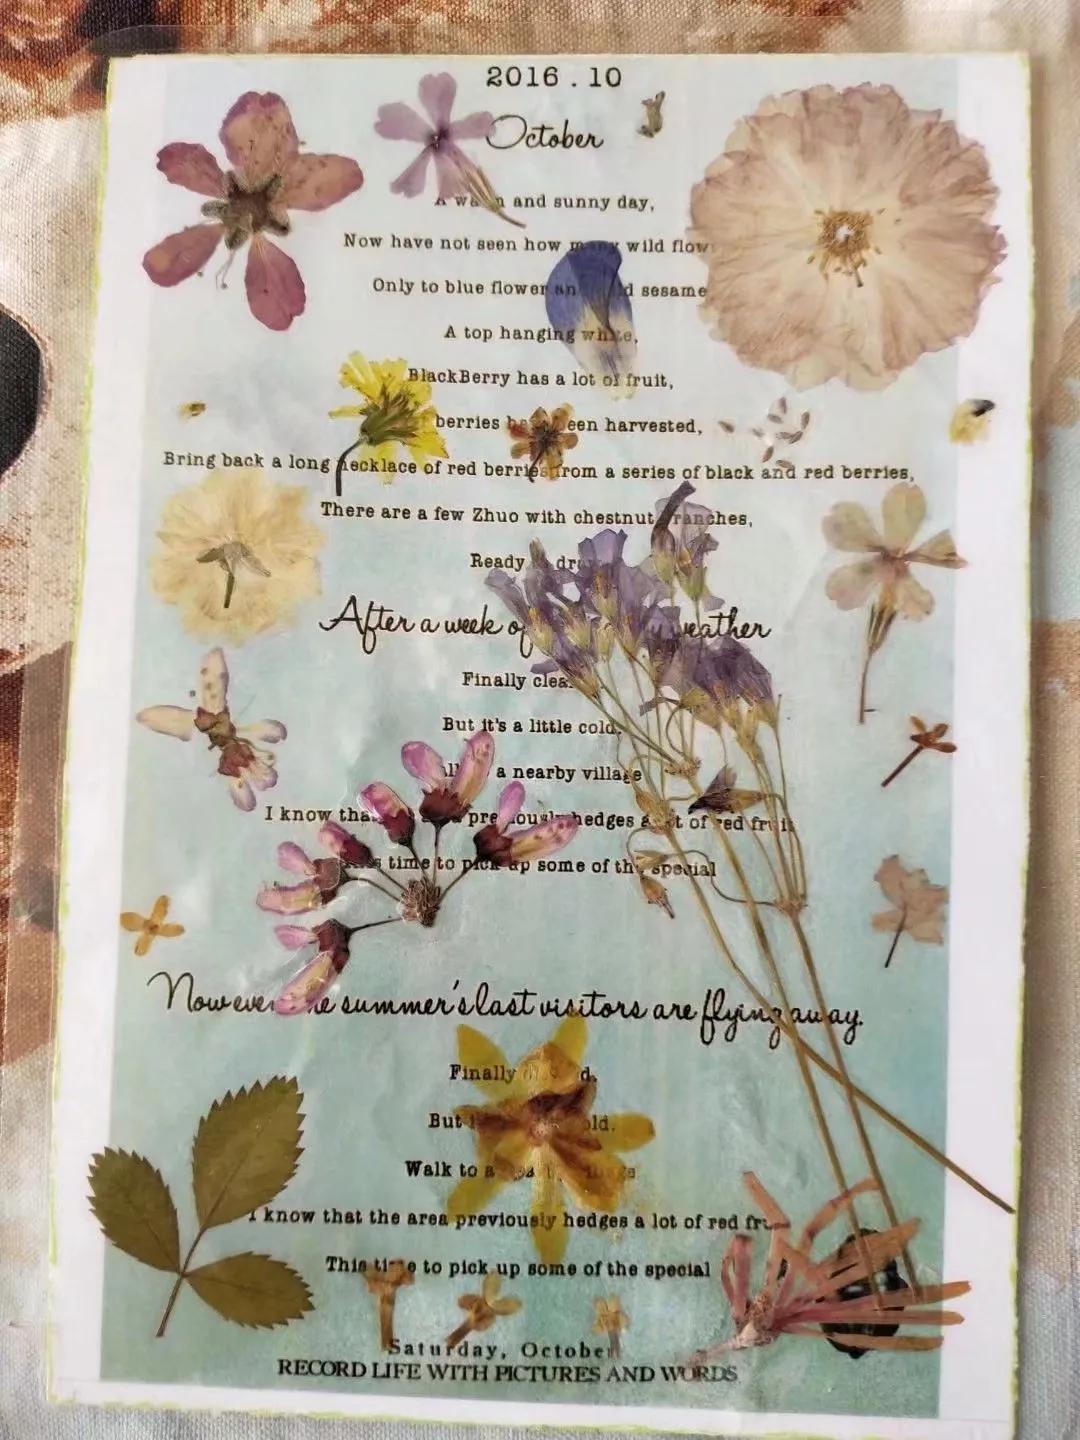 2016.10
October
A warm and sunny day,
Now have not seen how many wild flow
Only to blue flower an d sesame
A top hanging white,
BlackBerry has a lot of fruit,
berries been harvested,
Bring back a long necklace of red berries from a series of black and red berries,
There are a few Zhuo with chestnut branches,
Ready
After a week of weather
Finally clea
But it's a little cold,
a nearby village
I know that previously hedges a lot of red fruit
This time to pick up some of the special
Now even the summer's last visitors are flying away.
Finally
But old.
Walk to a
I know that the area previously hedges a lot of red fru
This time to pick up some of the special
Saturday, October
RECORD LIFE WITH PICTURES AND WORDS